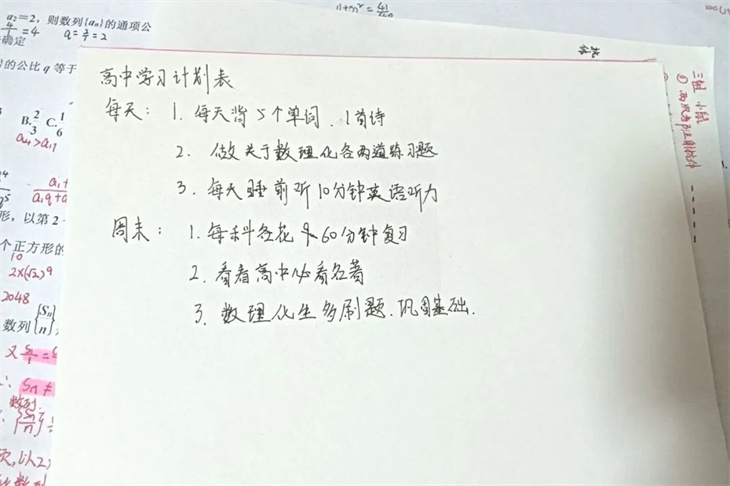 高中学习计划表
每天: 1. 每天背5个单词、1首诗
2. 做关于数理化各两道练习题
3. 每天睡前听10分钟英语听力
周末: 1. 每科各花 60分钟复习
2. 看看高中必看名著
3. 数理化生多刷题、巩固基础.
a₂=2, 则数列{aₙ}的通项公
=4
确定
的公比 q 等于
B. 2/3 C. 1/6
形, 以第2
个正方形的
2048
数列{Sₙ/n}
Sₙ≠
数列
三组